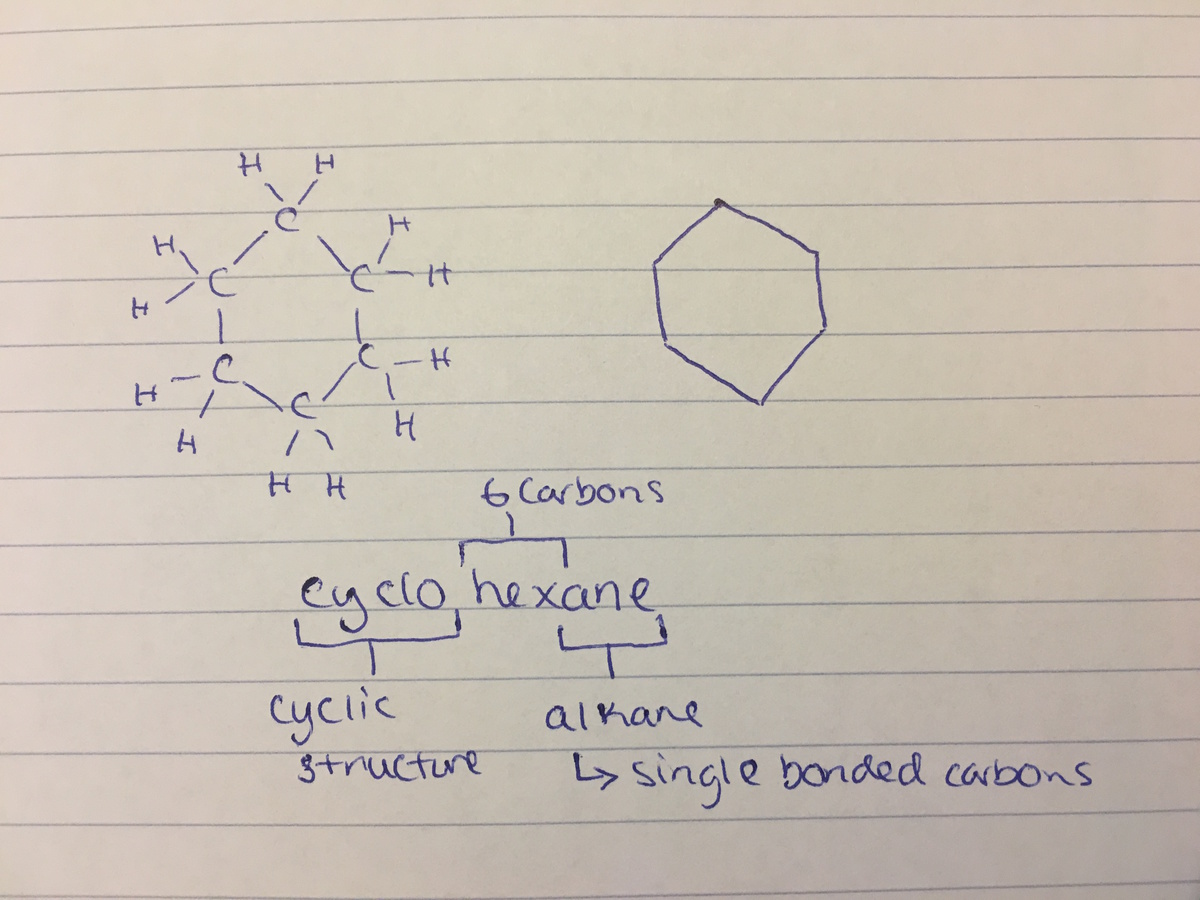 H H
C
H H
C C H
H
C C H
H
H C H
H H
6 Carbons
cyclo hexane
cyclic alkane
structure ↳ single bonded carbons